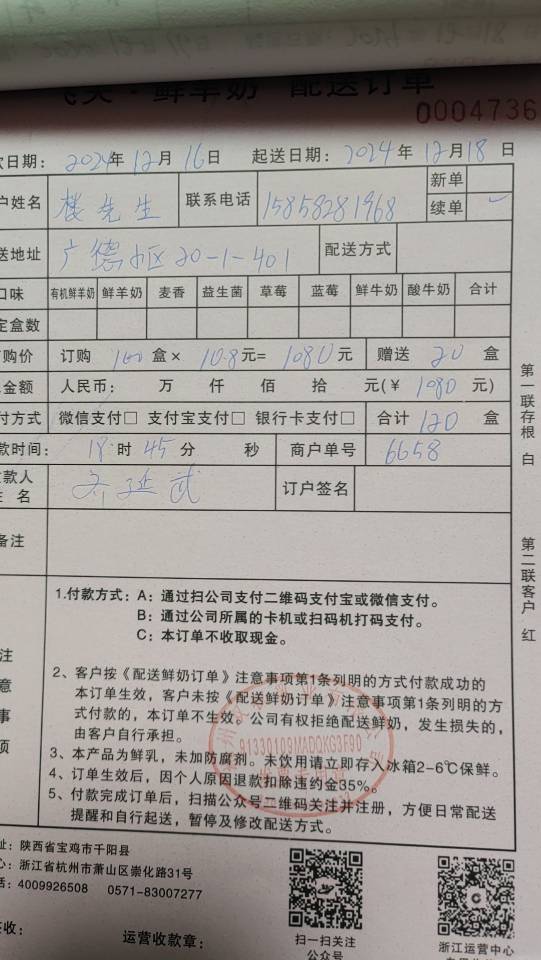 ·鲜羊奶 配送订单
0004736
日期: 2024年 12月 16日 起送日期: 2024年 12月 18日
户姓名 楼先生 联系电话 15858281968 新单
续单 ✓
送地址 广德小区 20-1-401 配送方式
口味 有机鲜羊奶 鲜羊奶 麦香 益生菌 草莓 蓝莓 鲜牛奶 酸牛奶 合计
定盒数
购价 订购 100 盒× 10.8元= 1080元 赠送 20 盒
金额 人民币: 万 仟 佰 拾 元(¥ 1080 元)
付方式 微信支付□ 支付宝支付□ 银行卡支付□ 合计 120 盒
款时间: 18时 45分 秒 商户单号 6658
款人
姓 名 订户签名
备注
第一联存根 白
第二联客户 红
注意事项
1.付款方式: A: 通过扫公司支付二维码支付宝或微信支付。
B: 通过公司所属的卡机或扫码机打码支付。
C: 本订单不收取现金。
2、客户按《配送鲜奶订单》注意事项第1条列明的方式付款成功的
本订单生效,客户未按《配送鲜奶订单》注意事项第1条列明的方
式付款的,本订单不生效。公司有权拒绝配送鲜奶,发生损失的,
由客户自行承担。
3、本产品为鲜乳,未加防腐剂。未饮用请立即存入冰箱2-6℃保鲜。
4、订单生效后,因个人原因退款扣除违约金35%。
5、付款完成订单后,扫描公众号二维码关注并注册,方便日常配送
提醒和自行起送,暂停及修改配送方式。
91330109MADQKG3F90
址: 陕西省宝鸡市千阳县
心: 浙江省杭州市萧山区崇化路31号
话: 4009926508 0571-83007277
签收: 运营收款章:
扫一扫关注
公众号
浙江运营中心